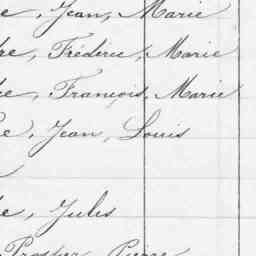 e, Jean, Marie
re, Fréderic, Marie
e, François, Marie
e, Jean, Louis
e, Jules
Prosper, Pierre